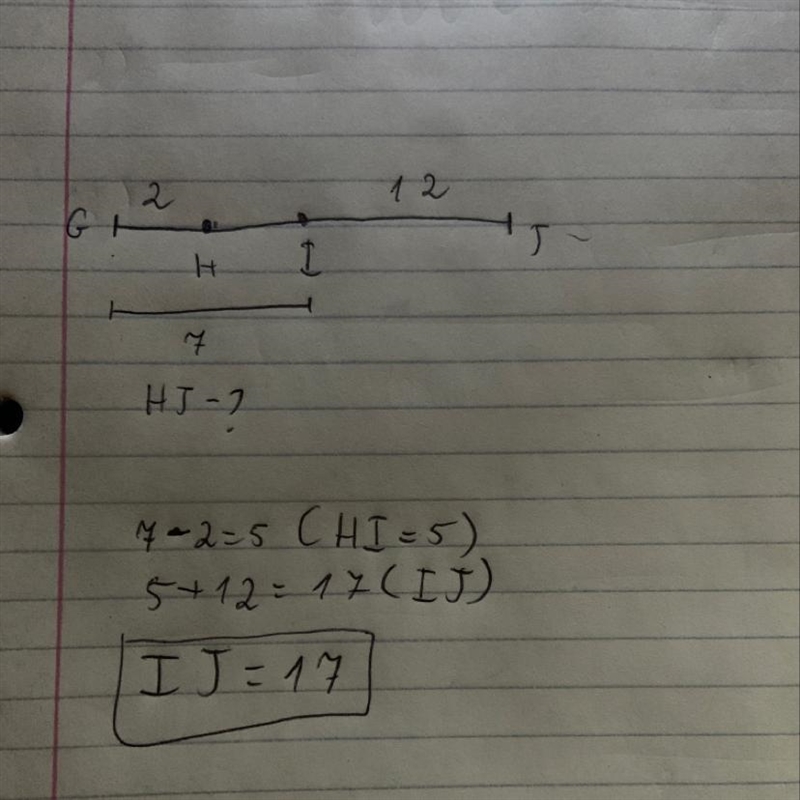 2 12
G H I J
7
HJ-?
7-2=5 (HI=5)
5+12=17(IJ)
IJ=17